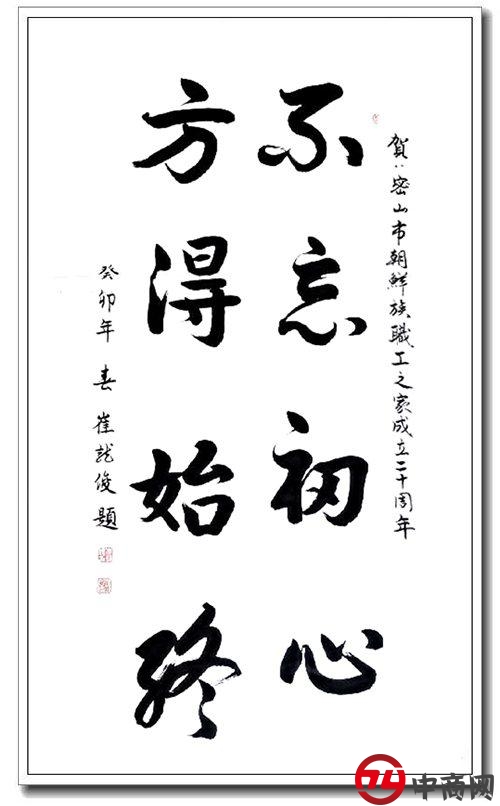 賀密山市朝鮮族職工之家成立二十周年
不忘初心
方得始終
癸卯年春崔龍俊題
中商网